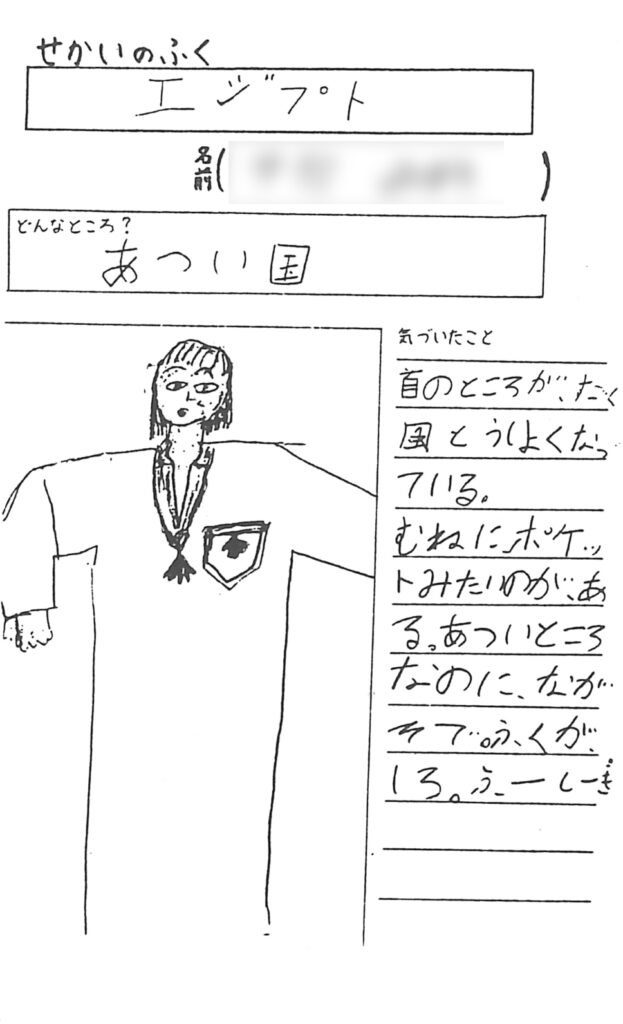 せかいのふく
エジプト
名前( )
どんなところ？
あつい国
気づいたこと
首のところが、たく
国とうしよくなっ
ている。
むねに、ポケッ
トみたいのが、あ
る。あついところ
なのに、なが
そで。ふくが、
しろ。ふーしーぎ